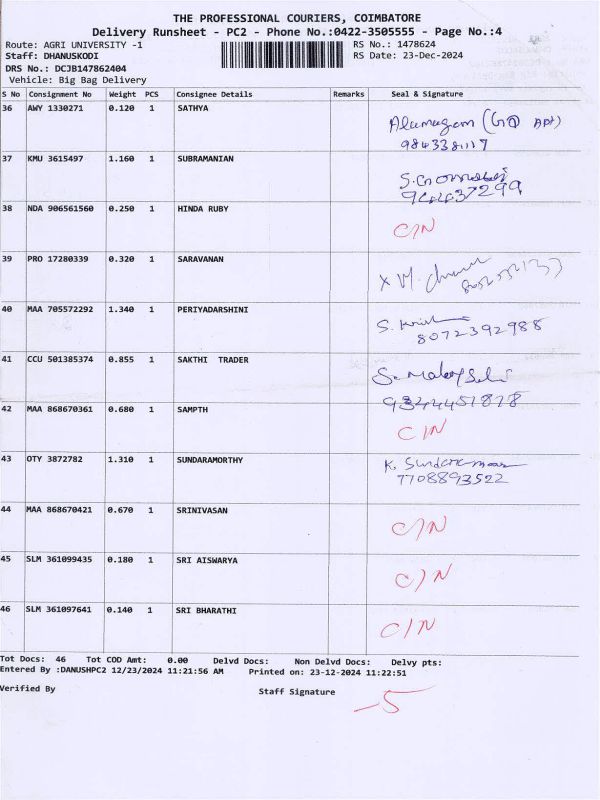 THE PROFESSIONAL COURIERS, COIMBATORE
Delivery Runsheet - PC2 - Phone No.:0422-3505555 - Page No.:4
Route: AGRI UNIVERSITY -1 RS No.: 1478624
Staff: DHANUSKODI RS Date: 23-Dec-2024
DRS No.: DCJB147862404
Vehicle: Big Bag Delivery
S No Consignment No Weight PCS Consignee Details Remarks Seal & Signature
36 AWY 1330271 0.120 1 SATHYA
37 KMU 3615497 1.160 1 SUBRAMANIAN
38 NDA 906561560 0.250 1 HINDA RUBY C/N
39 PRO 17280339 0.320 1 SARAVANAN
40 MAA 705572292 1.340 1 PERIYADARSHINI
8072392988
41 CCU 501385374 0.855 1 SAKTHI TRADER
9344451878
42 MAA 868670361 0.680 1 SAMPTH C/N
43 OTY 3872782 1.310 1 SUNDARAMORTHY
7708893522
44 MAA 868670421 0.670 1 SRINIVASAN C/N
45 SLM 361099435 0.180 1 SRI AISWARYA C/N
46 SLM 361097641 0.140 1 SRI BHARATHI C/N
Tot Docs: 46 Tot COD Amt: 0.00 Delvd Docs: Non Delvd Docs: Delvy pts:
Entered By :DANUSHPC2 12/23/2024 11:21:56 AM Printed on: 23-12-2024 11:22:51
Verified By Staff Signature
-5